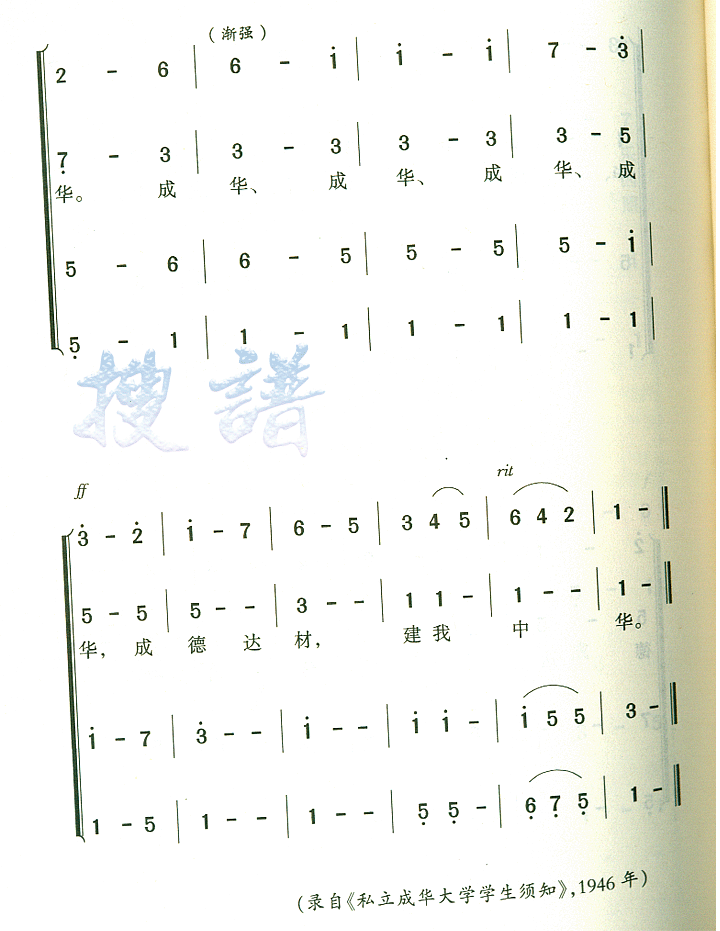 (渐强)
2 - 6 | 6 - i̇ | i̇ - i̇ | 7 - 3̇ |
7̣ - 3 | 3 - 3 | 3 - 3 | 3 - 5 |
华。 成 华、 成 华、 成 华、 成
5 - 6 | 6 - 5 | 5 - 5 | 5 - i̇ |
5̣ - 1 | 1 - 1 | 1 - 1 | 1 - 1 |
搜譜
ff rit
3̇ - 2̇ | i̇ - 7 | 6 - 5 | 3 4 5 | 6 4 2 | 1 - ‖
5 - 5 | 5 - - | 3 - - | 1 1 - | 1 - - | 1 - ‖
华, 成 德 达 材, 建 我 中 华。
i̇ - 7 | 3̇ - - | i̇ - - | i̇ i̇ - | i̇ 5 5 | 3 - ‖
1 - 5 | 1 - - | 1 - - | 5̣ 5̣ - | 6̣ 7̣ 5̣ | 1 - ‖
(录自《私立成华大学学生须知》,1946 年)